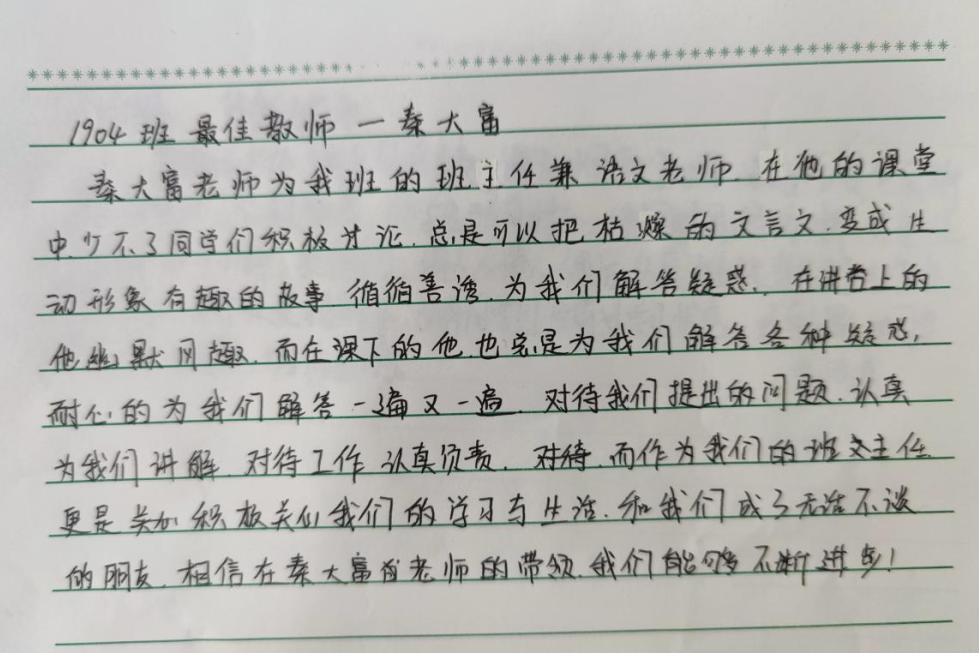 1904班 最佳教师 — 秦大富
秦大富老师为我班的班主任兼语文老师.在他的课堂
中.少不了同学们积极讨论.总是可以把枯燥的文言文.变成生
动形象有趣的故事.循循善诱.为我们解答疑惑.在讲台上的
他幽默风趣.而在课下的他.也总是为我们解答各种疑惑,
耐心的为我们解答一遍又一遍.对待我们提出的问题.认真
为我们讲解.对待工作认真负责.对待.而作为我们的班主任
更是积极关心我们的学习与生活.和我们成了无话不谈
的朋友.相信在秦大富老师的带领.我们能够不断进步!